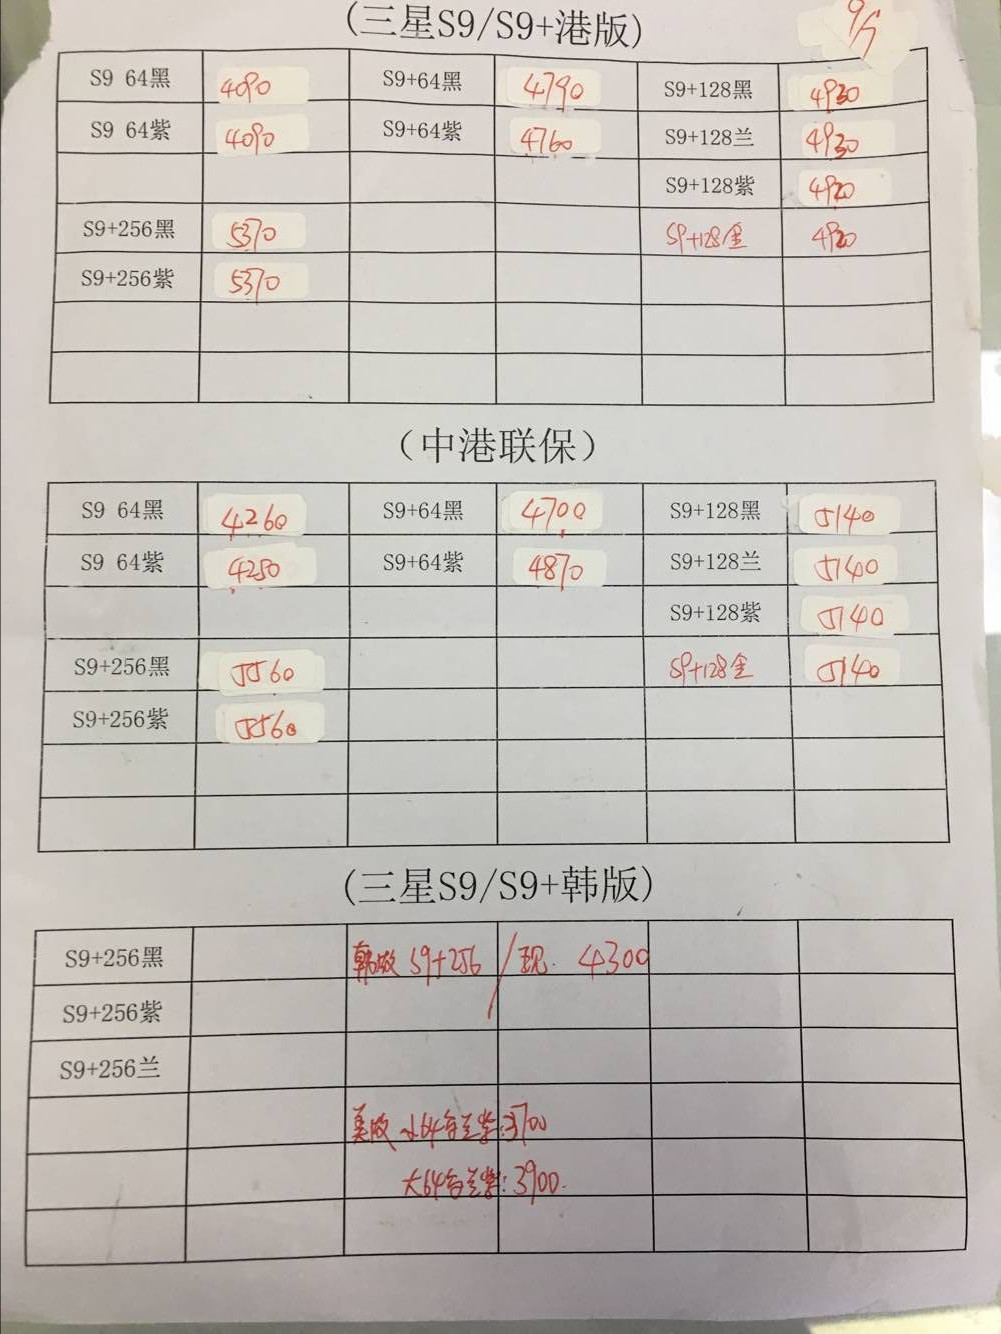 (三星S9/S9+港版)
9/5
S9 64黑 4090 S9+64黑 4790 S9+128黑 4930
S9 64紫 4090 S9+64紫 4760 S9+128兰 4930
S9+128紫 4920
S9+256黑 5370 S9+128金 4920
S9+256紫 5370
(中港联保)
S9 64黑 4260 S9+64黑 4700 S9+128黑 5140
S9 64紫 4250 S9+64紫 4870 S9+128兰 5140
S9+128紫 5140
S9+256黑 5560 S9+128金 5140
S9+256紫 5560
(三星S9/S9+韩版)
S9+256黑 韩版 S9+256 / 现. 4300
S9+256紫
S9+256兰
美版 小64 兰紫:3700
大64 兰紫:3900.